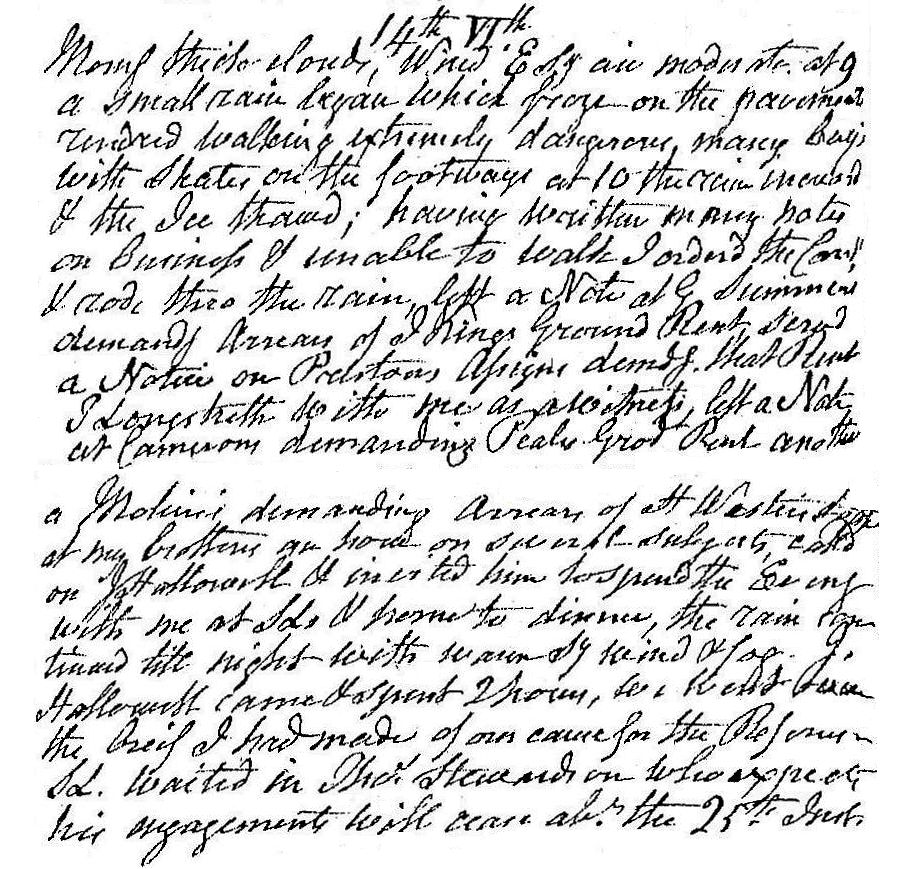 14th VIth
Morng thick clouds, Wind Ely air moderate. at 9
a small rain began which froze on the pavement
rendred walking extremely dangerous, many boys
with Skates on the footways at 10 the rain increasd
& the Ice thawd; having written many notes
on business & unable to walk I orderd the
& rode thro the rain, left a Note at G Summers
demandg Arrears of J Kings Ground Rent, servd
a Notice on Prestons Assigns demdg. that Rent
J Longstreth with me as a witness, left a Note
at Camerons demanding Peales Grod Rent another
a Molinis demanding Arrears of H Westens
at my brothers an hour on several subjects, calld
on J Hallowell & invited him to spend the Eveng
with me at SLs & home to dinner, the rain con
tinued till night with warm Sy wind & fog. J.
Hallowell came & spent 2 hours, we went over
the breif I had made of our cause for the
SL. waited in Thos Stewardson who expects
his engagements will cease abt. the 25th Inst.